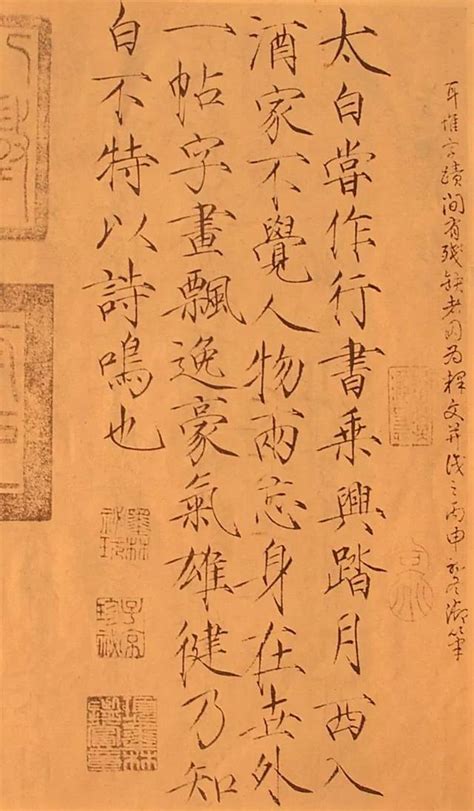 蹟間有殘缺者因為釋文并識之丙申御筆
太白嘗作行書乘興踏月西入
酒家不覺人物兩忘身在世外
一帖字畫飄逸豪氣雄健乃知
白不特以詩鳴也
墨林秘玩